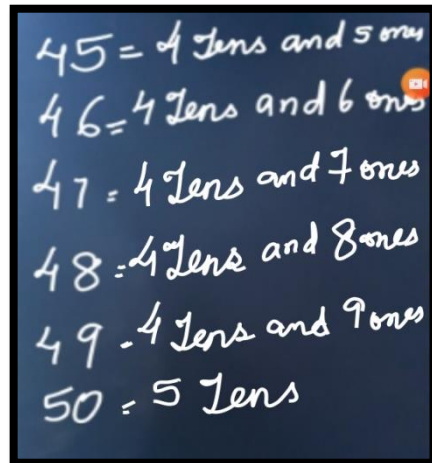 45 = 4 Tens and 5 ones
46 = 4 Tens and 6 ones
47 = 4 Tens and 7 ones
48 = 4 Tens and 8 ones
49 = 4 Tens and 9 ones
50 = 5 Tens